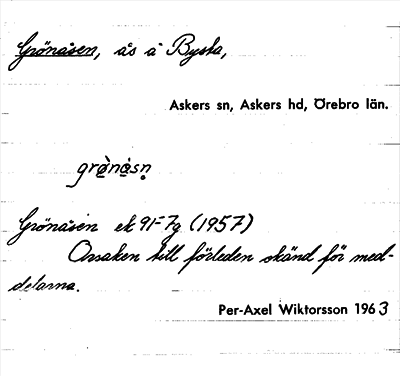 Grönåsen, ås å Bysta,
Askers sn, Askers hd, Örebro län.
grø̀nåsn̥
Grönåsen ek 91-7g (1957)
Orsaken till förleden okänd för med-
delarna.
Per-Axel Wiktorsson 1963